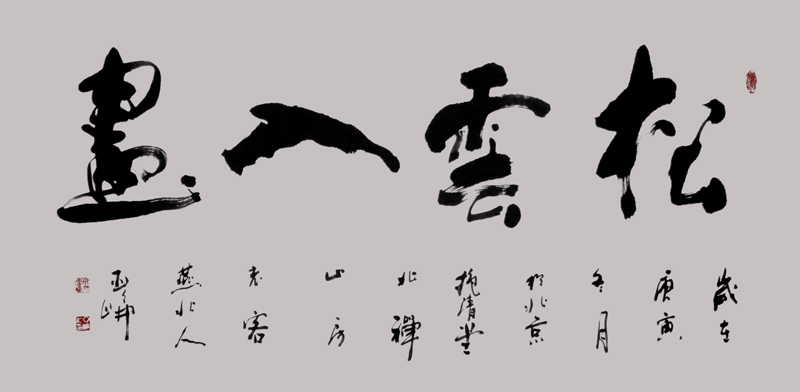 松雲入畫
歲在
庚寅
冬月
於北京
清堂
北禪
山房
老客
燕北人